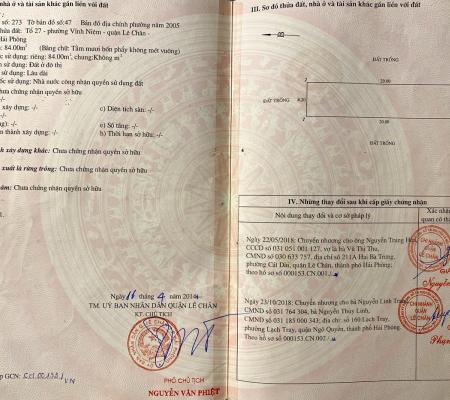 nhà ở và tài sản khác gắn liền với đất
số: 273 Tờ bản đồ số:47 Bản đồ địa chính phường năm 2005
thửa đất: Tổ 27 - phường Vĩnh Niệm - quận Lê Chân,
Hải Phòng
84.00m² (Bằng chữ: Tám mươi bốn phẩy không mét vuông)
sử dụng: riêng: 84.00m², chung:Không m²
sử dụng: Đất ở đô thị
sử dụng: Lâu dài
sử dụng: Nhà nước công nhận quyền sử dụng đất
chưa chứng nhận quyền sở hữu
-/-
xây dựng: -/- c) Diện tích sàn: -/-
-/-
): -/- e) Số tầng: -/-
thành xây dựng: -/- h) Thời hạn sở hữu: -/-
xây dựng khác: Chưa chứng nhận quyền sở hữu
xuất là rừng trồng: Chưa chứng nhận quyền sở hữu
năm: Chưa chứng nhận quyền sở hữu
Ngày 16 tháng 4 năm 2014
TM. UỶ BAN NHÂN DÂN QUẬN LÊ CHÂN
KT. CHỦ TỊCH
PHÓ CHỦ TỊCH
NGUYỄN VĂN PHIỆT
GCN:
III. Sơ đồ thửa đất, nhà ở và tài sản khác gắn liền với đất
ĐẤT TRỐNG
20.00
ĐẤT TRỐNG
4.20
20.00
ĐẤT TRỐNG
IV. Những thay đổi sau khi cấp giấy chứng nhận
Nội dung thay đổi và cơ sở pháp lý
Xác nhận
quan có thẩm
Ngày 22/05/2018: Chuyển nhượng cho ông Nguyễn Trung
CCCD số 031 051 001 127, vợ là bà Vũ Thị Thu,
CMND số 030 633 757, địa chỉ số 211A Hai Bà Trưng,
phường Cát Dài, quận Lê Chân, thành phố Hải Phòng;
theo hồ sơ số 000153.CN.001./
Ngày 23/10/2018: Chuyển nhượng cho bà Nguyễn Linh Trang
CMND số 031 764 304, bà Nguyễn Thùy Linh,
CMND số 031 185 000 343; địa chỉ: số 160 Lạch Tray,
phường Lạch Tray, quận Ngô Quyền, thành phố Hải Phòng.
Theo hồ sơ số 000153.CN.002./
CHI NHÁNH
QUẬN
LÊ CHÂN
Nguyễn
CHI NHÁNH
QUẬN
LÊ CHÂN
Phạm